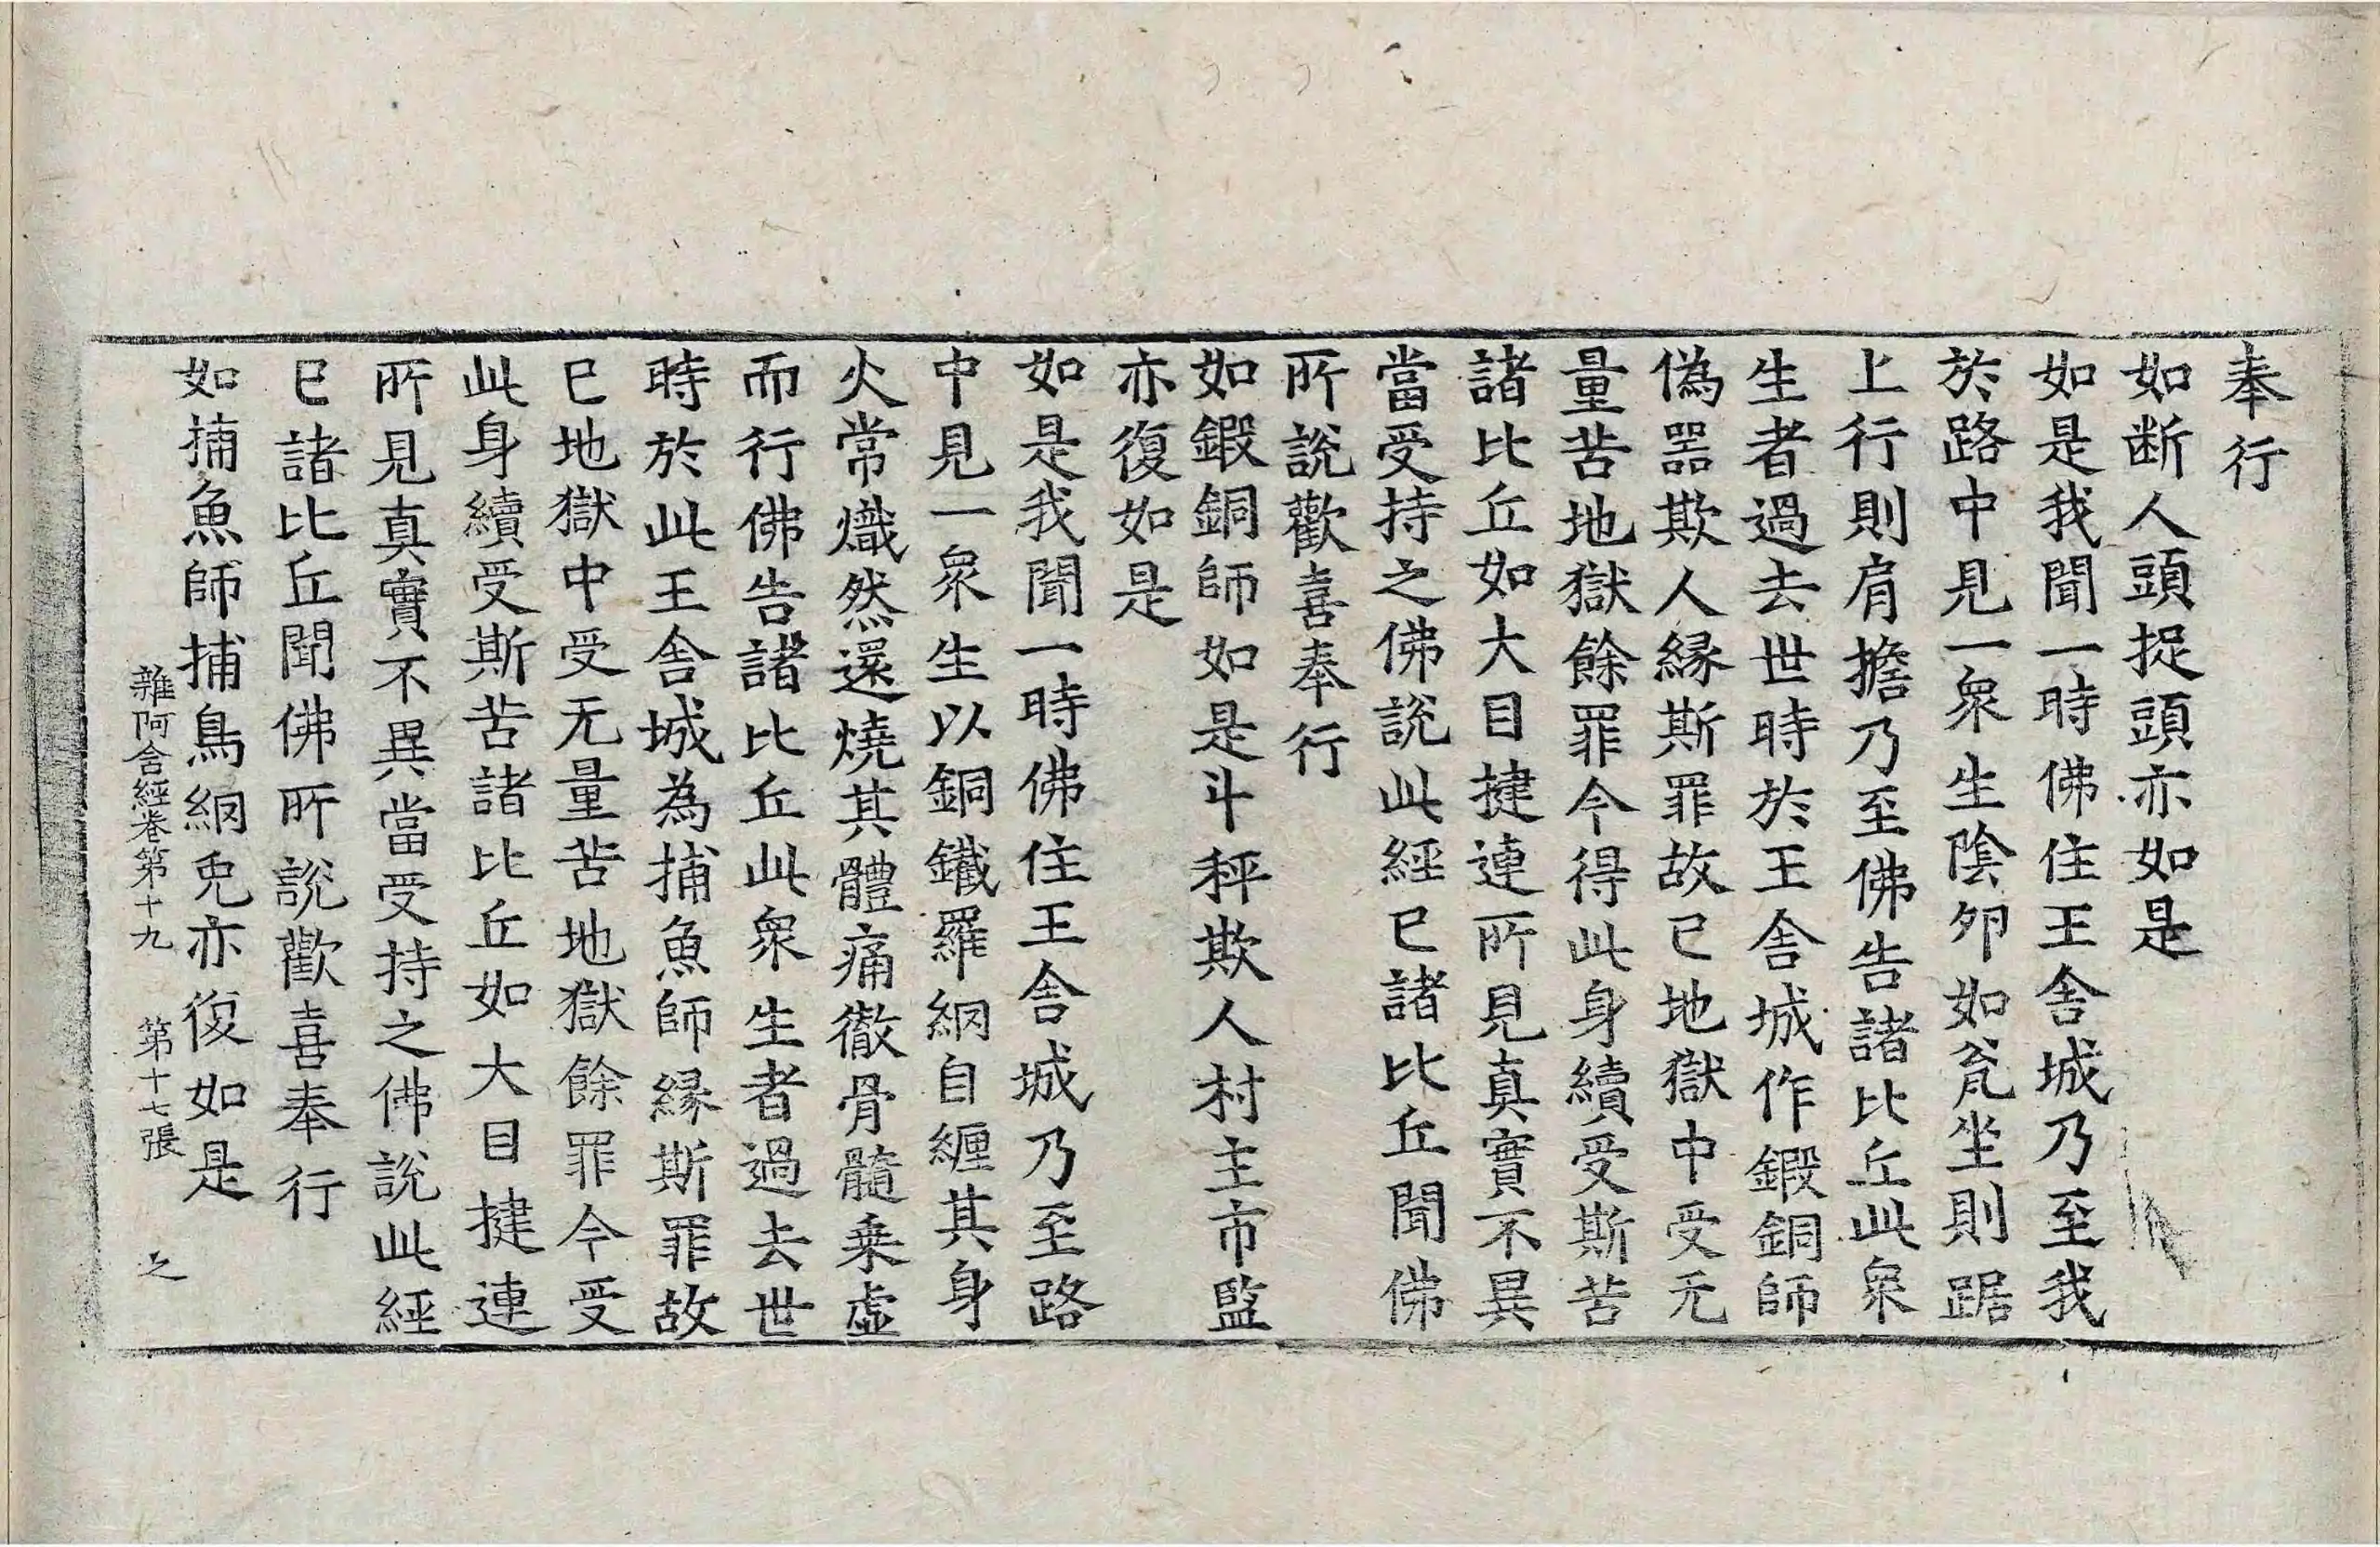 奉行
如断人頭捉頭亦如是
如是我聞一時佛住王舍城乃至我
於路中見一衆生陰卵如瓮坐則踞
上行則肩擔乃至佛告諸比丘此衆
生者過去世時於王舍城作鍛銅師
偽器欺人緣斯罪故已地獄中受无
量苦地獄餘罪今得此身續受斯苦
諸比丘如大目揵連所見真實不異
當受持之佛說此經已諸比丘聞佛
所說歡喜奉行
如鍛銅師如是斗秤欺人村主市監
亦復如是
如是我聞一時佛住王舍城乃至路
中見一衆生以銅鐵羅網自纏其身
火常熾然還燒其體痛徹骨髓乗虛
而行佛告諸比丘此衆生者過去世
時於此王舍城為捕魚師緣斯罪故
已地獄中受无量苦地獄餘罪今受
此身續受斯苦諸比丘如大目揵連
所見真實不異當受持之佛說此經
已諸比丘聞佛所說歡喜奉行
如捕魚師捕鳥網兎亦復如是
雜阿含經卷第十九 第十七張 之